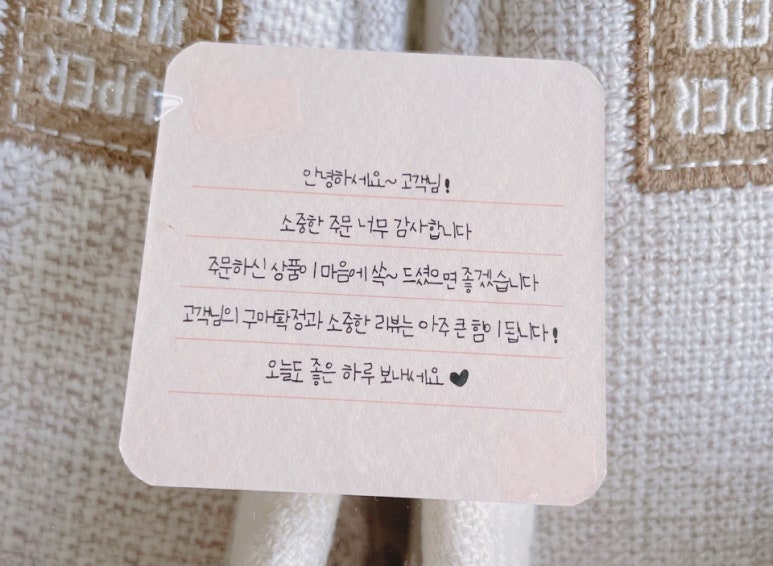 안녕하세요~ 고객님!
소중한 주문 너무 감사합니다
주문하신 상품이 마음에 쏙~ 드셨으면 좋겠습니다
고객님의 구매확정과 소중한 리뷰는 아주 큰 힘이 됩니다!
오늘도 좋은 하루 보내세요 ♥
SUPER
SUPER